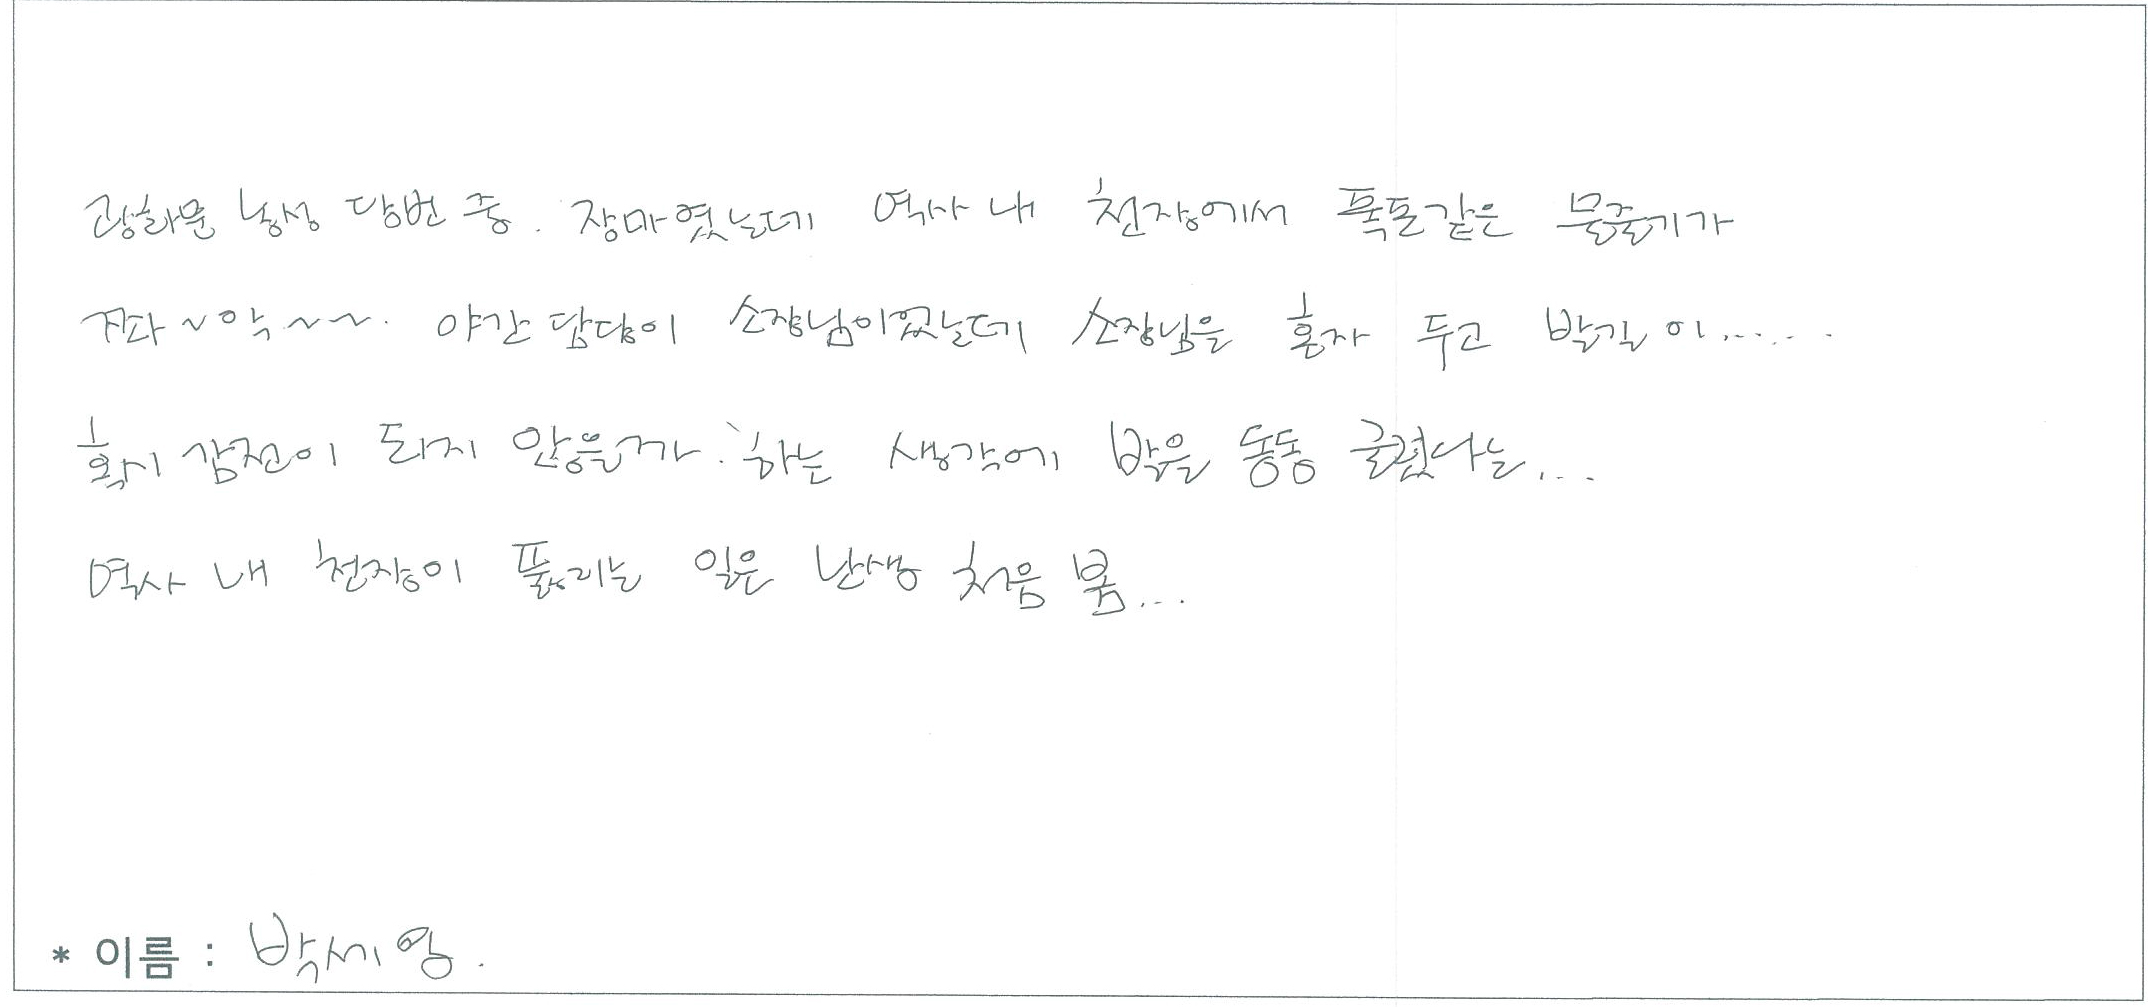 광화문 농성 당번 중. 장마였는데 역사 내 천장에서 폭포같은 물줄기가
좌~악~~. 야간 담당이 소장님이었는데 소장님을 혼자 두고 발길이......
혹시 감전이 되지 않을까. 하는 생각에 발을 동동 굴렸다는...
역사 내 천장이 뚫리는 일은 난생 처음 봄...
* 이름 : 박세영.